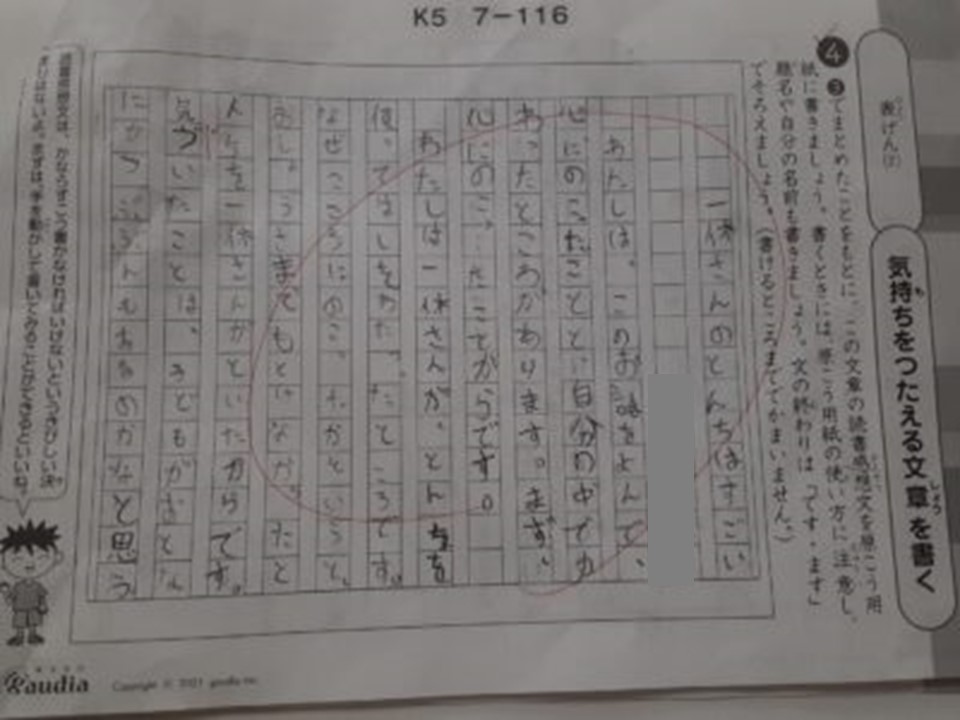 K5 7-116
表げん(2)
気持ちをつたえる文章を書く
4
③でまとめたことをもとに、この文章の読書感想文を原こう用
紙に書きましょう。書くときには、原こう用紙の使い方に注意し、
題名や自分の名前も書きましょう。文の終わりは「です・ます」
でそろえましょう。(書けるところまででかまいません。)
一休さんのとんちはすごい
わたしは、このお話をよんで、
心にのこったことと、自分の中でか
わったところがあります。まず、
心にのこったことからです。
わたしは一休さんが、とんちを
使ってはしをわたったところです。
なぜこころにのこったかというと、
人を一休さんがといたからです。
気づいたことは、
と思う
読書感想文は、かならずこう書かなければいけないというきびしい決
まりはないよ。まずは、手を動かして書いてみることができるといいね。
gaudia
Copyright © 2021 gaudia inc.